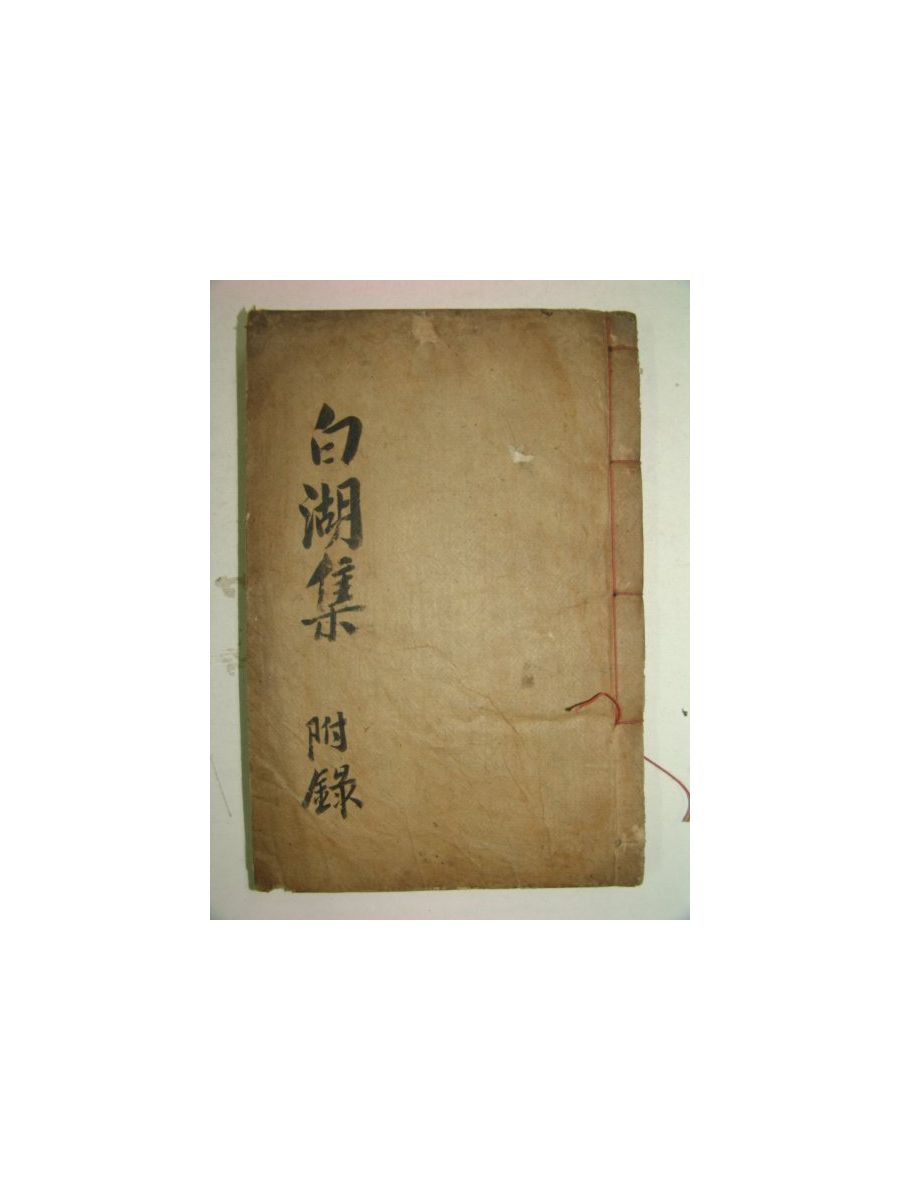 白湖集 附錄